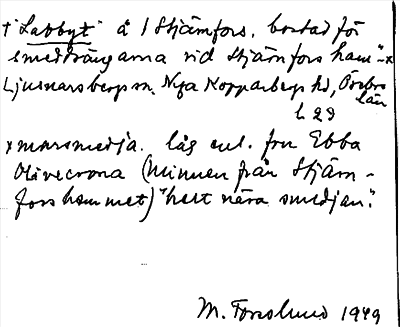 †"Labbyt" å / Stjärnfors, bostad för
smeddrängarna vid Stjärnfors ham-x
Ljusnarsbergs sn. Nya Kopparbergs hd, Örebro
län
L 29
x marsmedja. låg enl. fru Ebba
Olivecrona (Minnen från Stjärn-
forshemmet) "helt nära smedjan".
M. Forslund 1949